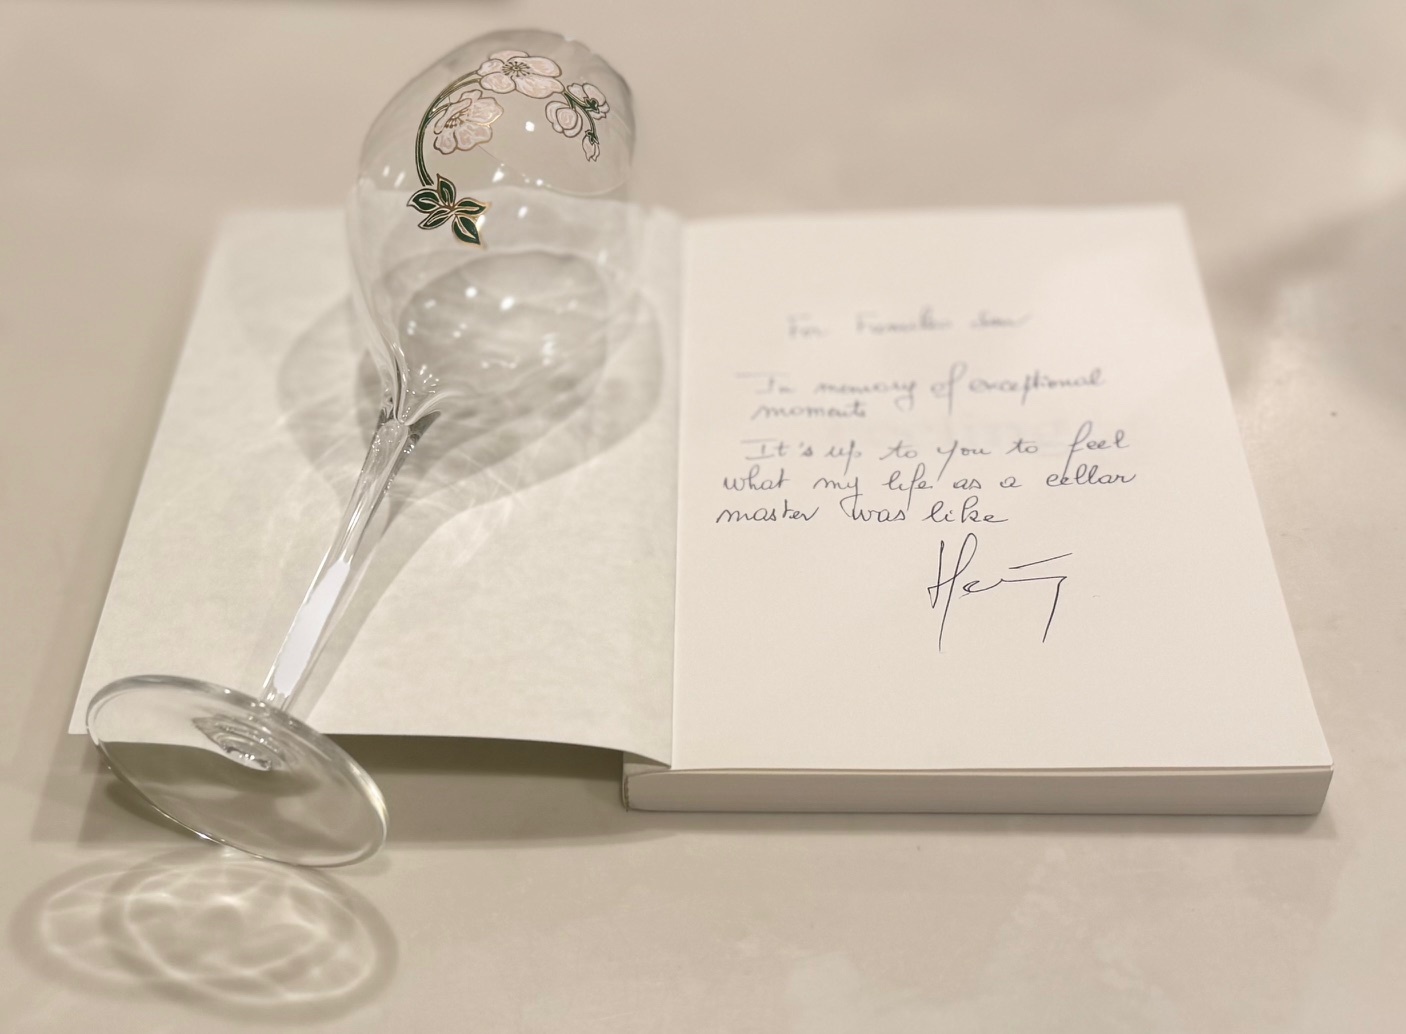 For
In memory of exceptional
moments
It's up to you to feel
what my life as a cellar
master was like